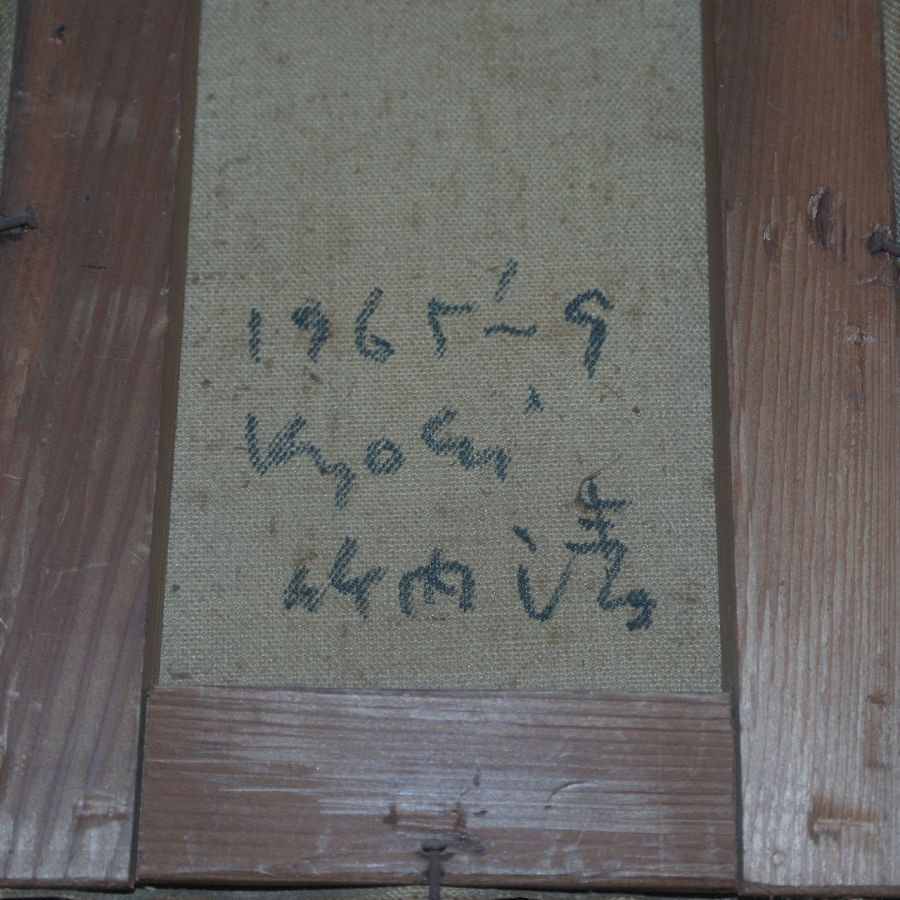 1965'～9
Kyoshi
竹内清